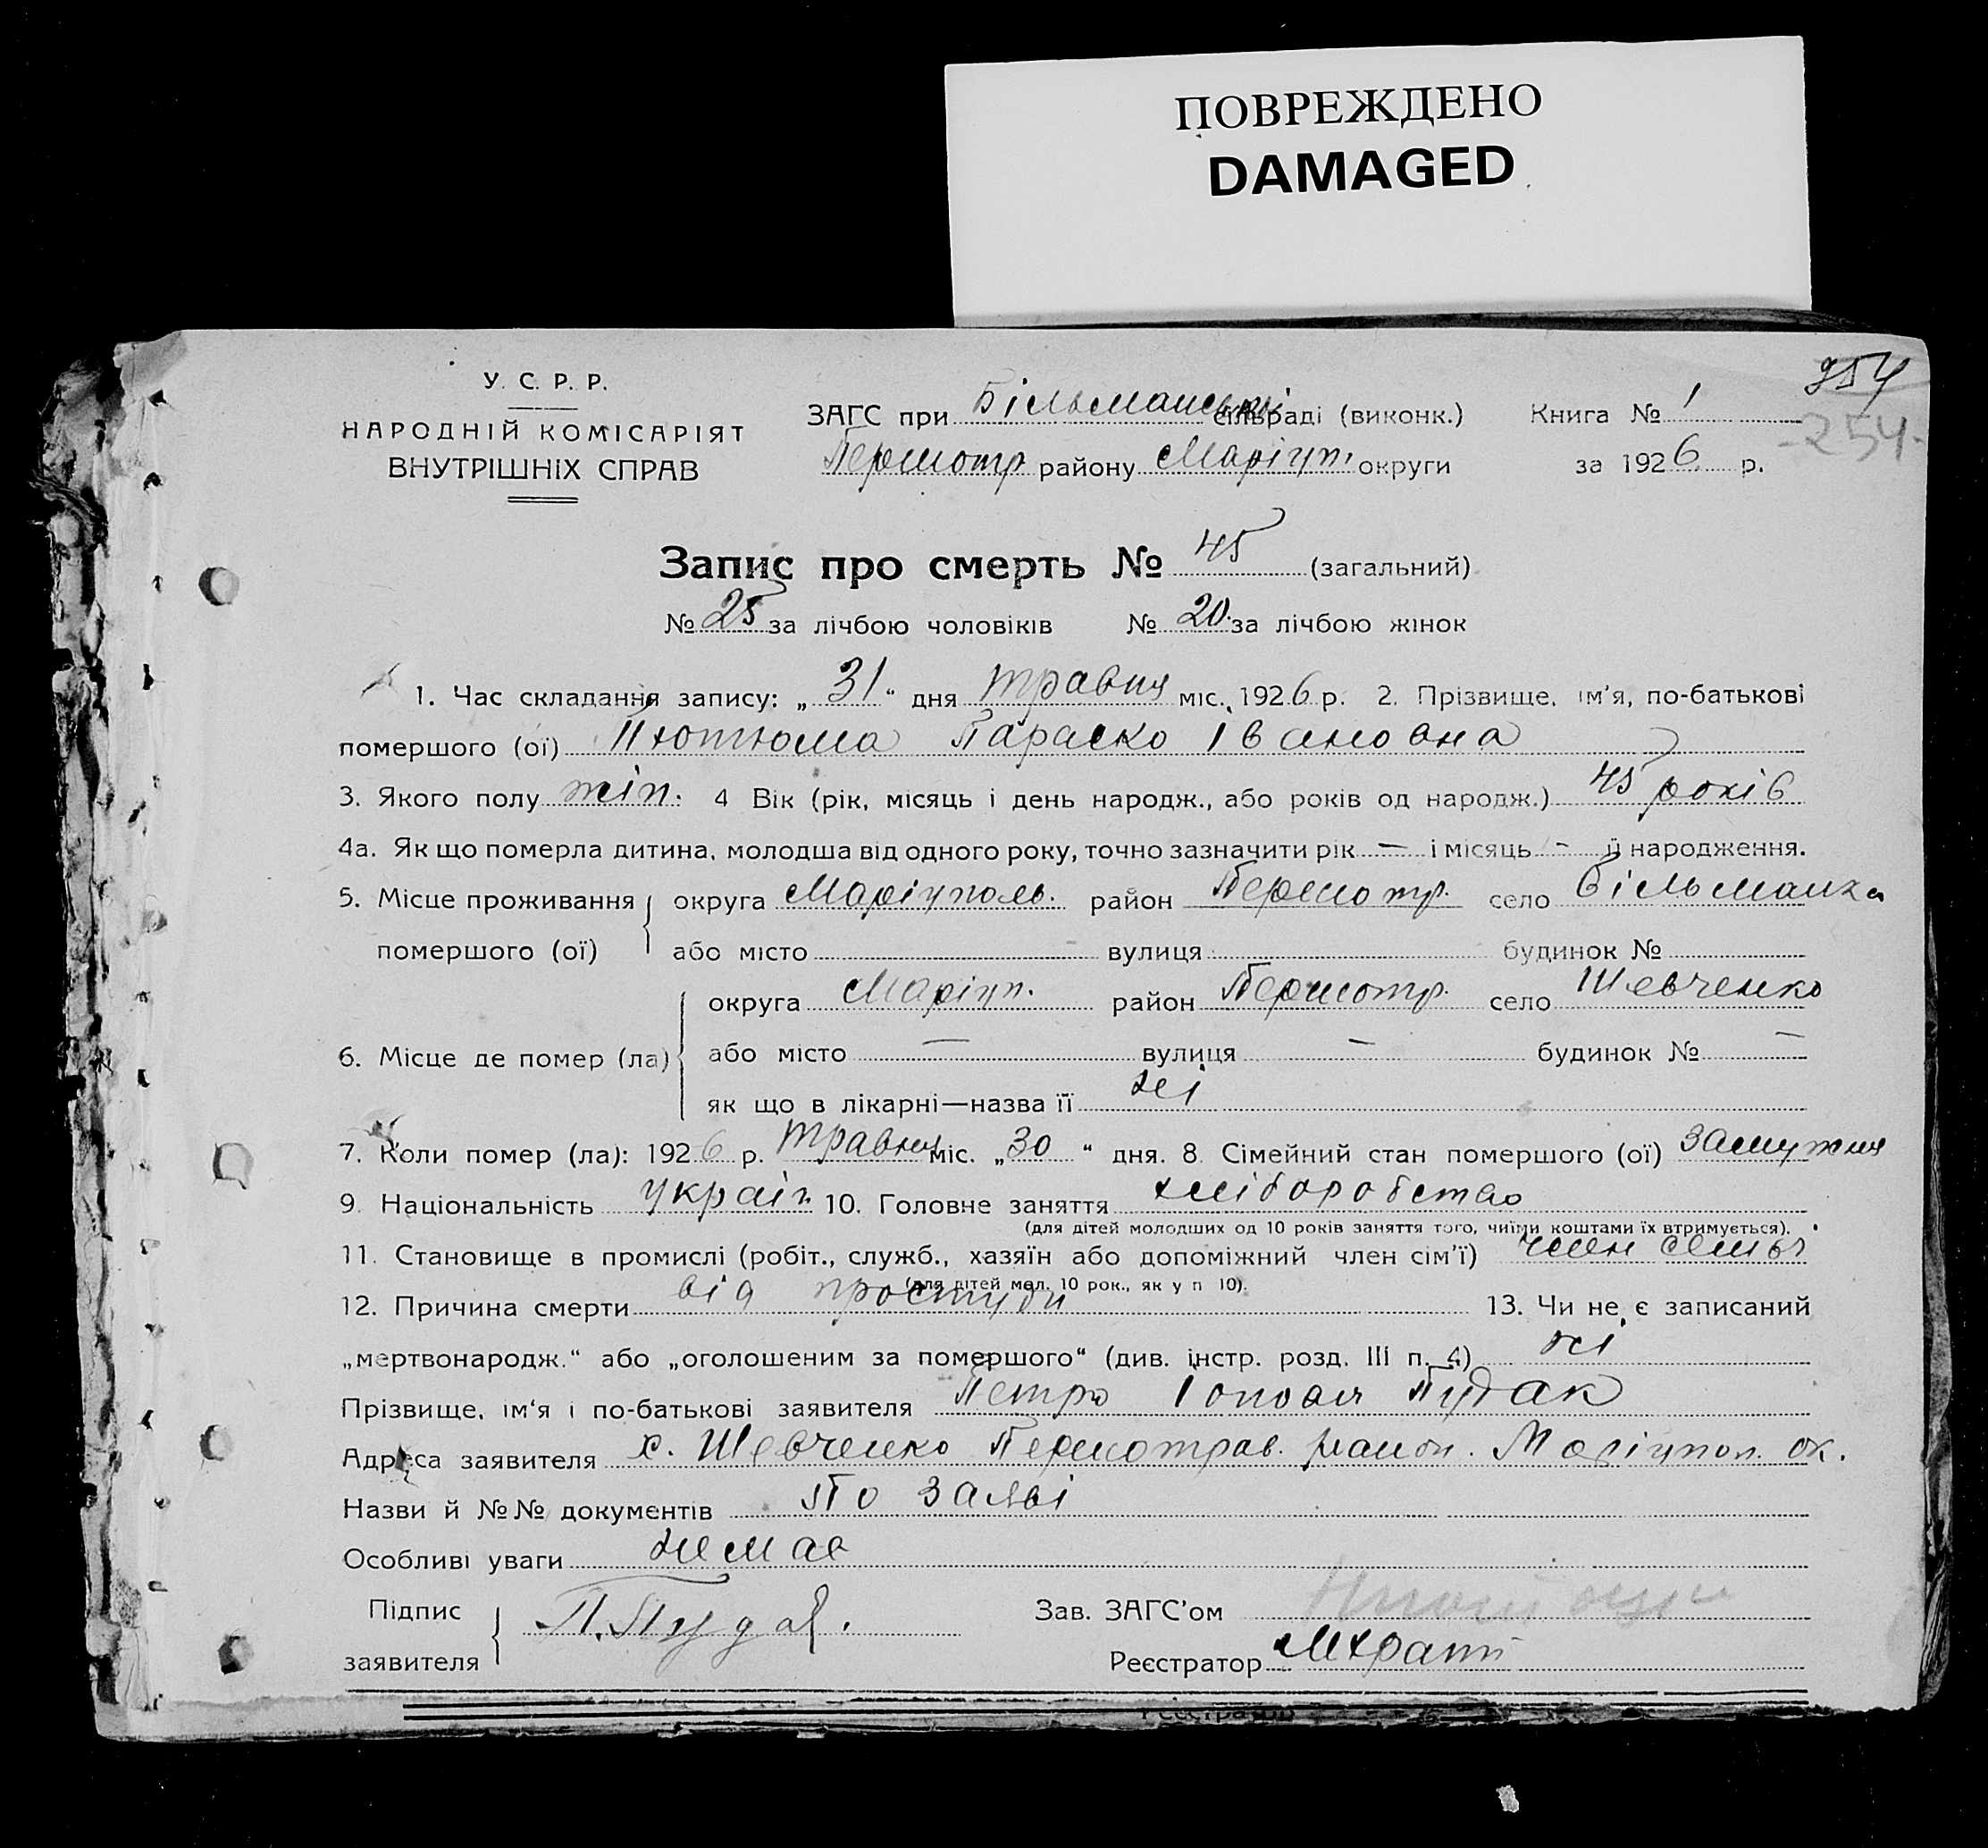 ПОВРЕЖДЕНО
DAMAGED
254
-254-
У. С. Р. Р.
НАРОДНІЙ КОМІСАРІЯТ
ВНУТРІШНІХ СПРАВ
ЗАГС при Більманськ сільраді (виконк.) Книга № 1
Першотр. району Маріуп. округи за 1926 р.
Запис про смерть № 45 (загальний)
№ 25 за лічбою чоловіків № 20. за лічбою жінок
1. Час складання запису: „31“ дня травня міс. 1926 р. 2. Прізвище, ім'я, по-батькові
помершого (ої) Параско Івановна
3. Якого полу жін. 4 Вік (рік, місяць і день народж., або років од народж.) 45 років
4а. Як що померла дитина, молодша від одного року, точно зазначити рік — і місяць - її народження.
5. Місце проживання помершого (ої) округа Маріуполь. район Першотр. село Більманка
або місто вулиця будинок №
6. Місце де помер (ла) округа Маріуп. район Першотр. село Шевченко
або місто — вулиця — будинок № —
як що в лікарні—назва її ні
7. Коли помер (ла): 1926 р. травня міс. „30“ дня. 8. Сімейний стан помершого (ої) замужня
9. Національність україн. 10. Головне заняття хліборобство
(для дітей молодших од 10 років заняття того, чиїми коштами їх втримується).
11. Становище в промислі (робіт., служб., хазяїн або допоміжний член сім'ї) член семьї
(для дітей мол. 10 рок., як у п 10).
12. Причина смерти від простуди 13. Чи не є записаний
„мертвонародж.“ або „оголошеним за помершого“ (див. інстр. розд. III п. 4) ні
Прізвище, ім'я і по-батькові заявителя Петро Пудак
Адреса заявителя х. Шевченко Першотрав. район. Маріупол. ок.
Назви й №№ документів По заяві
Особливі уваги немає
Підпис заявителя П. Пудак.
Зав. ЗАГС'ом
Реєстратор